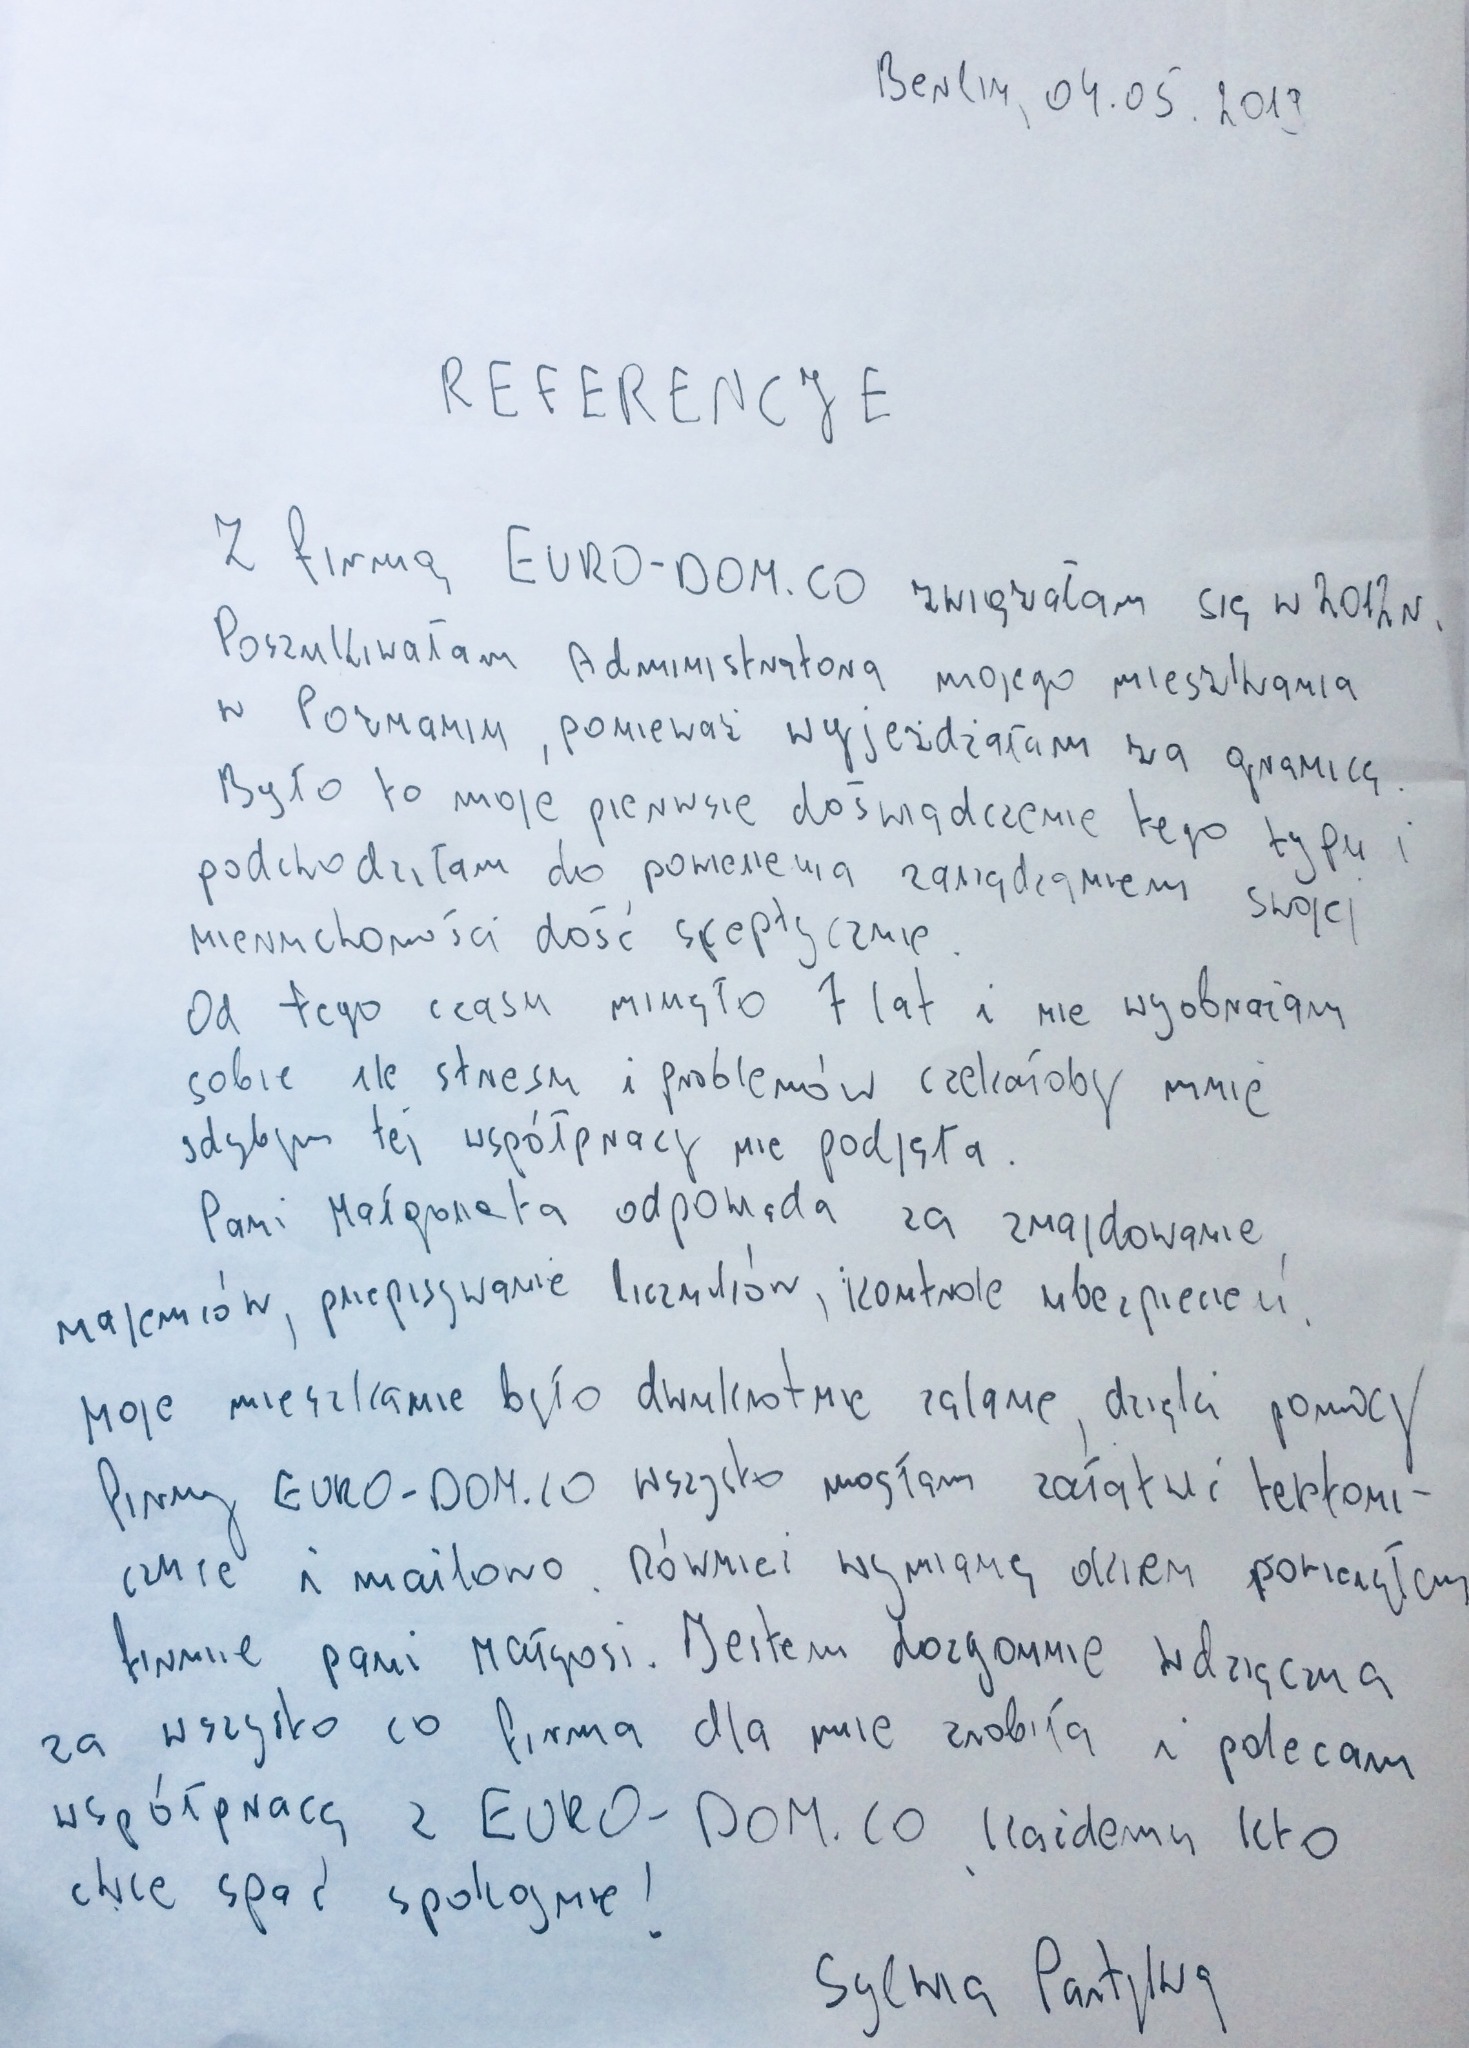 Berlin, 04.05.2019
REFERENCJE
Z firmą EURO-DOM.CO związałam się w 2012r.
Poszukiwałam Administratora mojego mieszkania
w Poznaniu, ponieważ wyjeżdżałam za granicę.
Było to moje pierwsze doświadczenie tego typu i
podchodziłam do powierzenia zarządzaniem swojej
nieruchomości dość sceptycznie.
Od tego czasu minęło 7 lat i nie wyobrażam
sobie ile stresu i problemów czekałoby mnie
gdybym tej współpracy nie podjęła.
Pani Małgorzata odpowiada za znajdowanie
najemców, przepisywanie liczników, kontrole ubezpieczeń.
Moje mieszkanie było dwukrotnie zalane, dzięki pomocy
firmy EURO-DOM.CO wszystko mogłam załatwić telefoni-
cznie i mailowo. Również wymianę okien powierzyłam
firmie pani Małgosi. Jestem dozgonnie wdzięczna
za wszystko co firma dla mnie zrobiła i polecam
współpracę z EURO-DOM.CO każdemu kto
chce spać spokojnie!
Sylwia Partyka